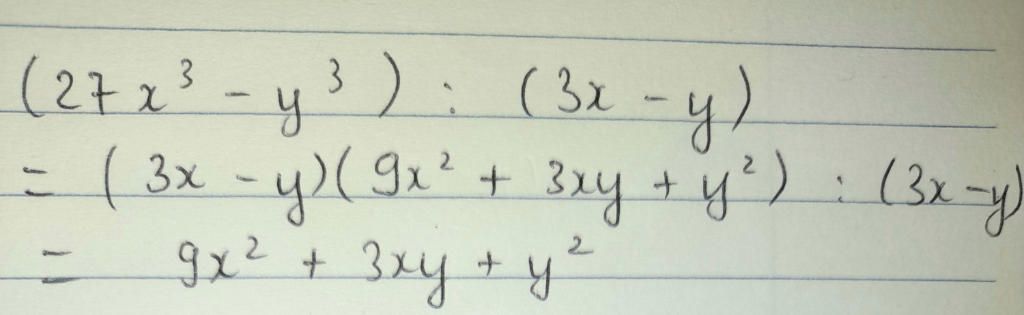 (27x³ - y³) : (3x - y)
= (3x - y)(9x² + 3xy + y²) : (3x - y)
= 9x² + 3xy + y²